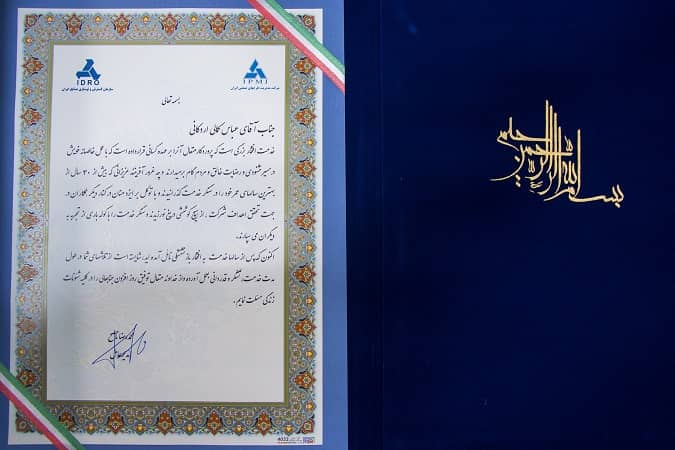 IPMI
شرکت مدیریت طرحهای صنعتی ایران
IDRO
سازمان گسترش و نوسازی صنایع ایران
بسمه تعالی
جناب آقای عباس کمالی اردکانی
خدمت افتخار بزرگی است که پروردگار متعال آنرا بر عهده کسانی قرار داده است که با عمل خالصانه خویش
در مسیر خشنودی و رضایت خالق و مردم گام برمیدارند و چه غرور آفرینند عزیزانی که بیش از ۳۰ سال از
بهترین سالهای عمر خود را در سنگر خدمت گذرانده‌اند و با توکل بر ایزد منان در کنار دیگر همکاران در
جهت تحقق اهداف شرکت ، از هیچ کوششی دریغ نورزیدند و سنگر خدمت را با کوله باری از تجربه به
دیگران می سپارند.
اکنون که پس از سالها خدمت به افتخار بازنشستگی نائل آمده اید، شایسته است از تلاشهای شما در طول
مدت خدمت، تشکر و قدردانی بعمل آورده و از خداوند متعال توفیق روز افزون جنابعالی را در کلیه شئونات
زندگی مسئلت نمایم .
4022
بسم الله الرحمن الرحیم